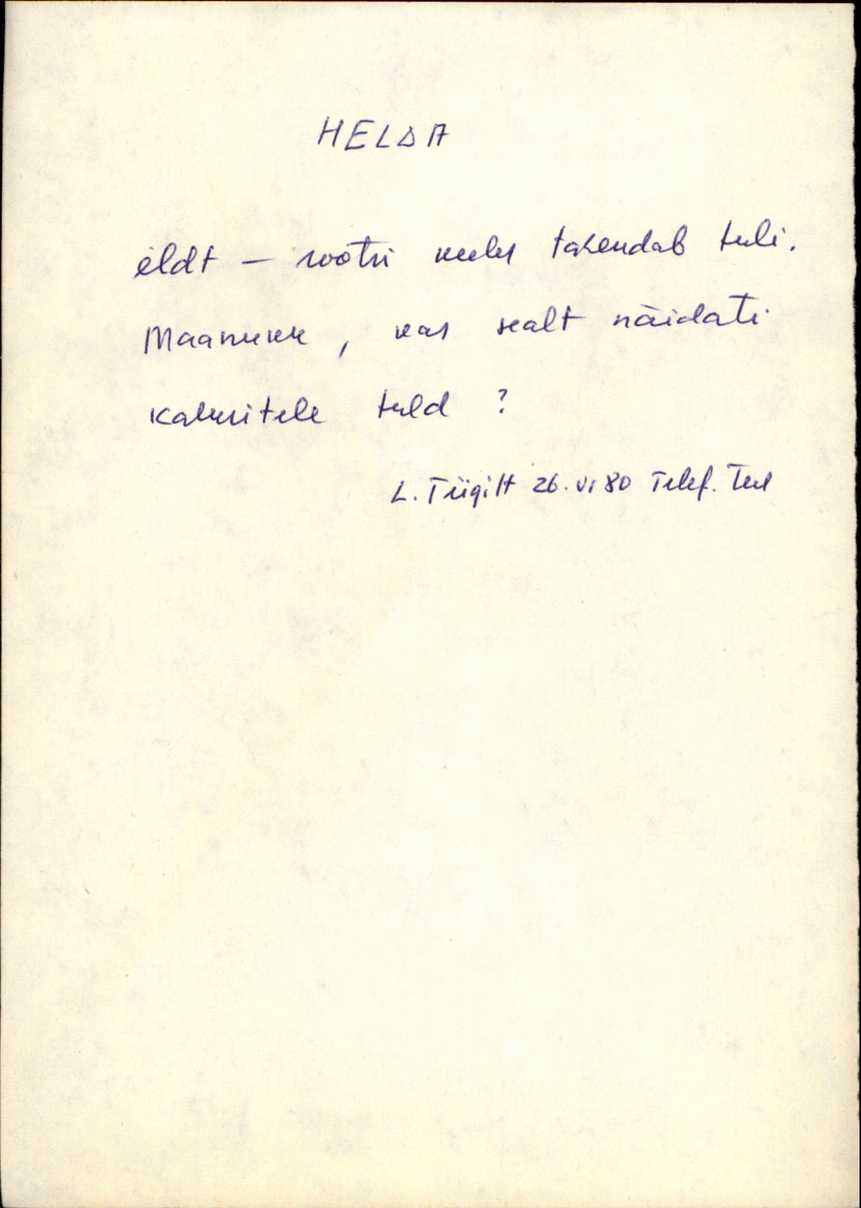 HELDA
eldt – rootsi keeles tähendab tuli.
Maanukk, kas sealt näidati
kaluritele tuld ?
L. Tiigilt 26. VI 80 Telef. teel